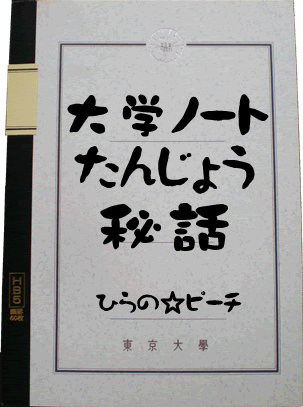 大学ノート
たんじょう
秘話
ひらの☆ピーチ
東京大學
HB5